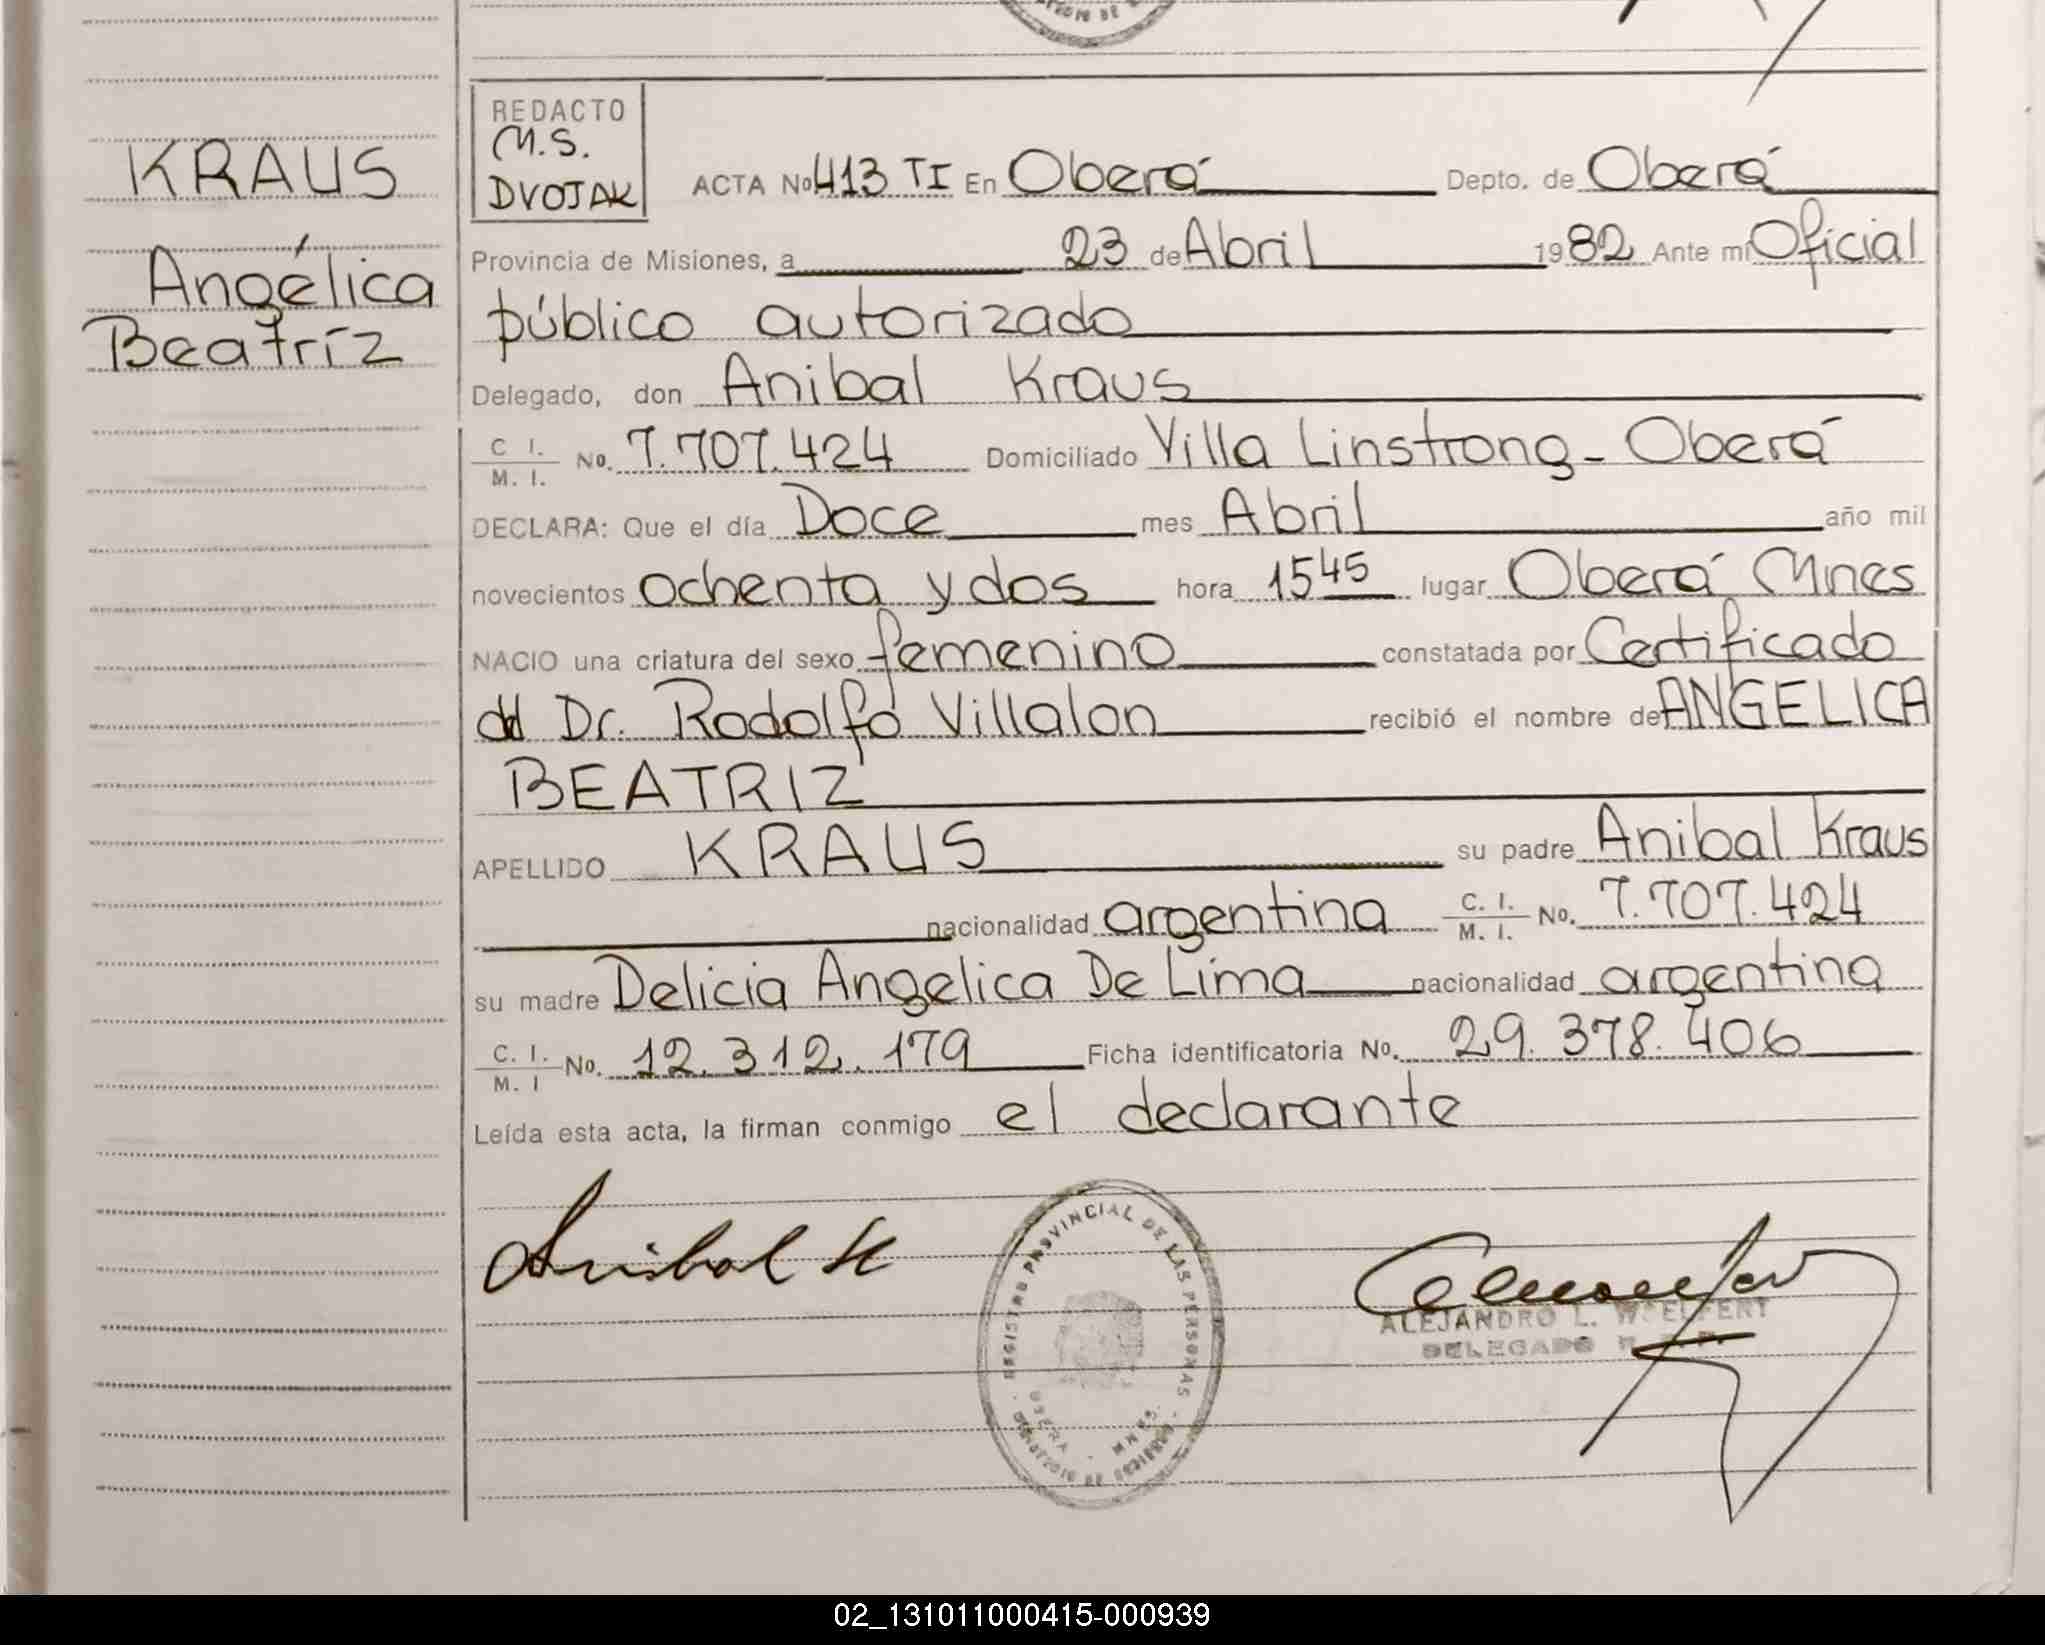 KRAUS
Angélica
Beatríz
REDACTO
M.S.
DVOJAK
ACTA No 413 TI En Oberá Depto. de Oberá
Provincia de Misiones, a 23 de Abril 1982 Ante mí Oficial
público autorizado
Delegado, don Anibal Kraus
C I. M. I. No. 7.707.424 Domiciliado Villa Linstrong - Oberá
DECLARA: Que el día Doce mes Abril año mil
novecientos ochenta y dos hora 1545 lugar Oberá Mnes
NACIO una criatura del sexo femenino constatada por Certificado
del Dr. Rodolfo Villalon recibió el nombre de ANGELICA
BEATRIZ
APELLIDO KRAUS su padre Anibal Kraus
nacionalidad argentina C. I. M. I. No. 7.707.424
su madre Delicia Angelica De Lima nacionalidad argentina
C. I. M. I No. 12.312.179 Ficha identificatoria No. 29.378.406
Leída esta acta, la firman conmigo el declarante
Anibal K
REGISTRO PROVINCIAL DE LAS PERSONAS
OBERA MNES.
ALEJANDRO L. WOELFERT
DELEGADO
02_131011000415-000939